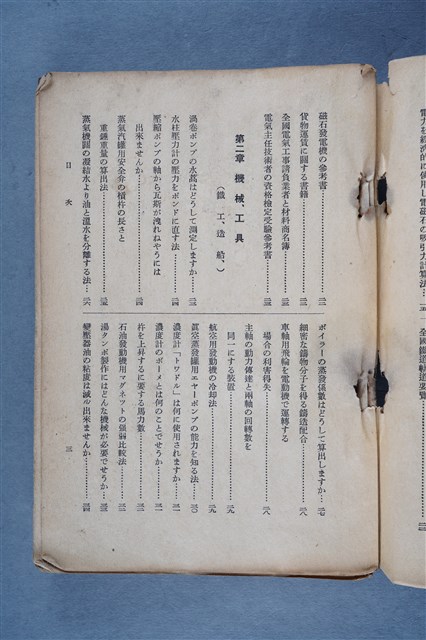 磁石發電機の參考書
貨物運賃に關する書籍
全國電氣工事請負業者と材料商名簿
電氣主任技術者の資格檢定受驗參考書
第二章 機械、工具
（鐵工、造船、）
渦卷ポンプの水高はどうして測定しますか
水柱壓力計の壓力をポンドに直す法
壓縮ポンプの軸から瓦斯が洩れねやうには
出來ませんか
蒸氣汽罐用安全弁の槓杆の長さと
重錘重量の算出法
蒸氣機關の凝結水より油と溫水を分離する法
ボイラーの蒸發係數はどうして算出しますか…二七
細密な鑄物分子を得る鑄造配合…二八
車軸用飛輪を電動機で運轉する
場合の利害得失…二八
主軸の動力傳達と兩軸の回轉數を
同一にする裝置…二九
航空用發動機の冷却法…二九
眞空蒸發罐用エヤーポンプの能力を知る法…三〇
濃度計「トワドル」は何に使用されますか…三一
濃度計のボーメとは何のことでせうか…三一
杵を上昇するに要する馬力數
石油發動機用マグネットの强弱比較法
湯タンポ製作にはどんな機械が必要でせうか
變壓器油の粘度は減か出來ませんか
目次
三